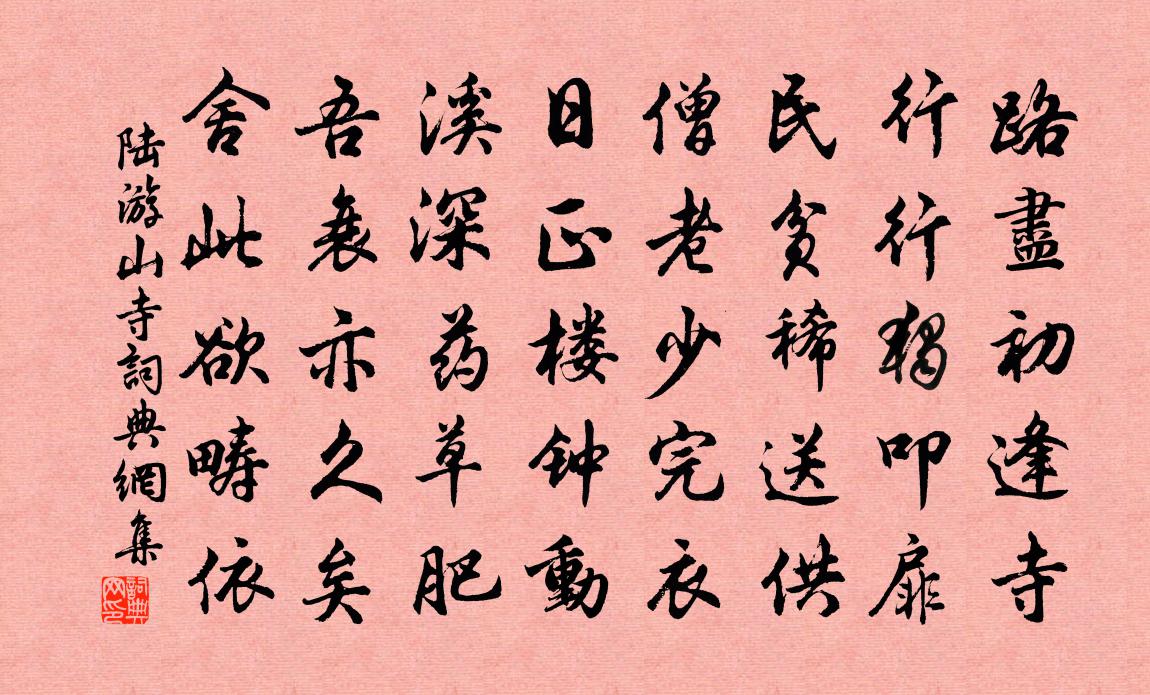 路盡初逢寺
行行獨叩扉
民贫稀送供
僧老少完衣
日正楼钟動
溪深药草肥
吾衰亦久矣
舍此欲畴依
陆游山寺詞典網集
詞典網印